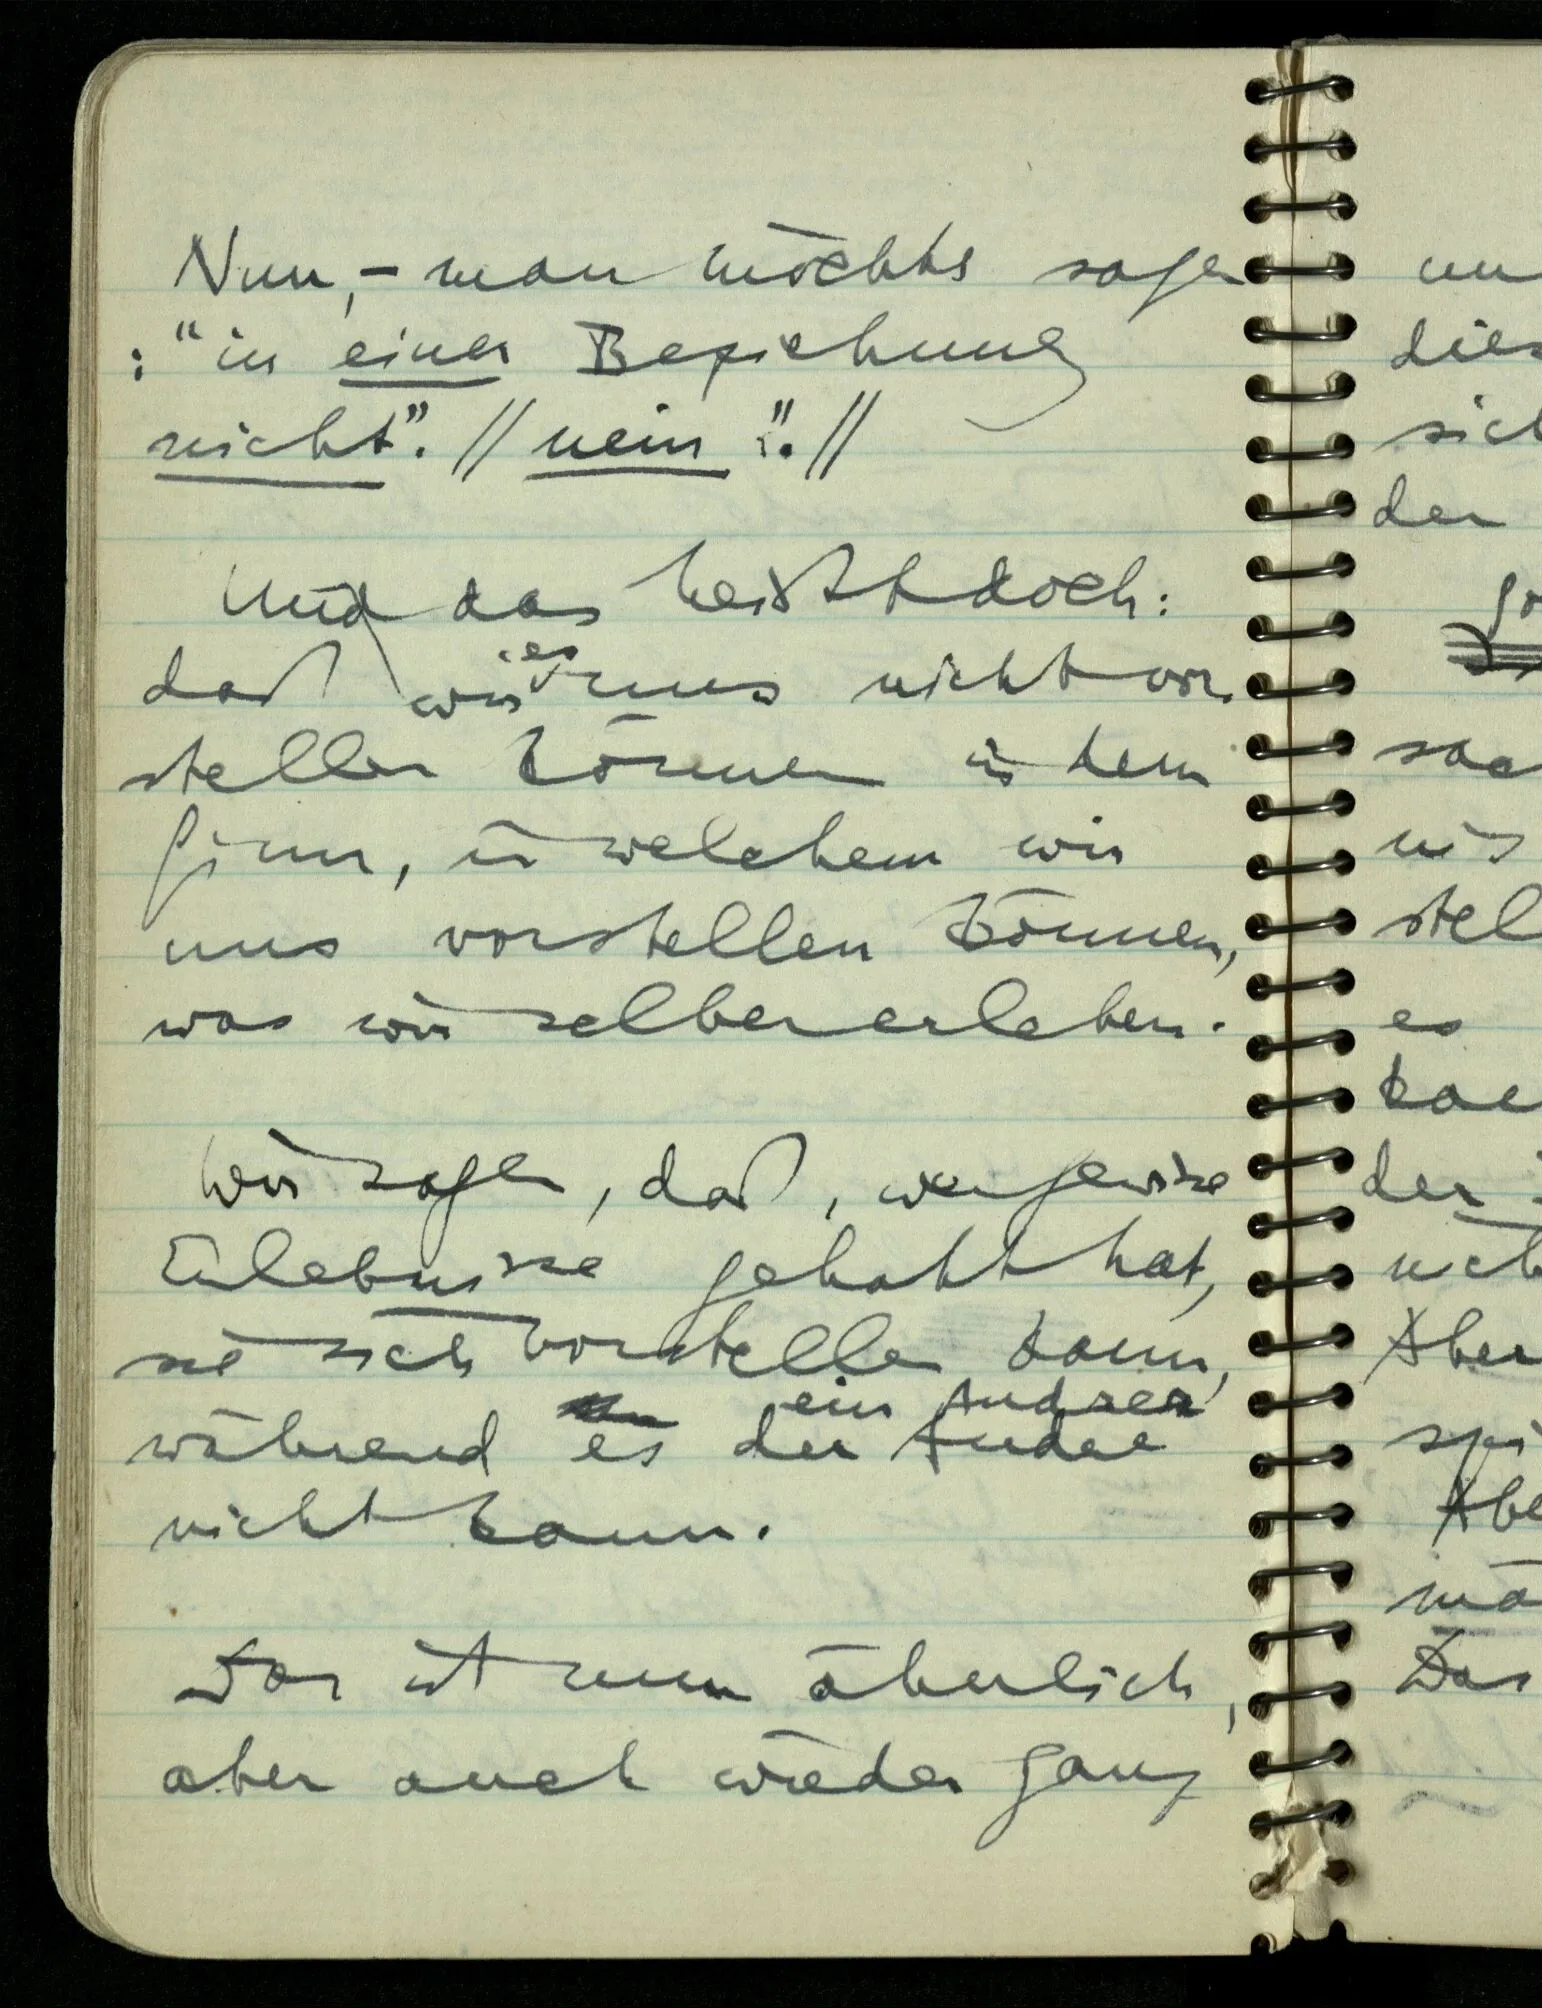 Nun, – man möchte sagen
: "in einer Beziehung
nicht". // nein". //
Und das heißt doch:
daß wir es uns nicht vor-
stellen können in dem
Sinn, in welchem wir
uns vorstellen können,
was wir selber erleben.
Wir sagen, daß, wer gewisse
Erlebnisse gehabt hat,
sie sich vorstellen kann,
ein Andrer
während es der Andre
nicht kann.
Das ist nun ähnlich,
aber auch wieder ganz
der
es
der
Aber
Das